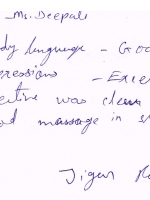 Ms. Deepali
dy language - Goo
pressions - Exce
ective was clear
od massage in s
Jigar